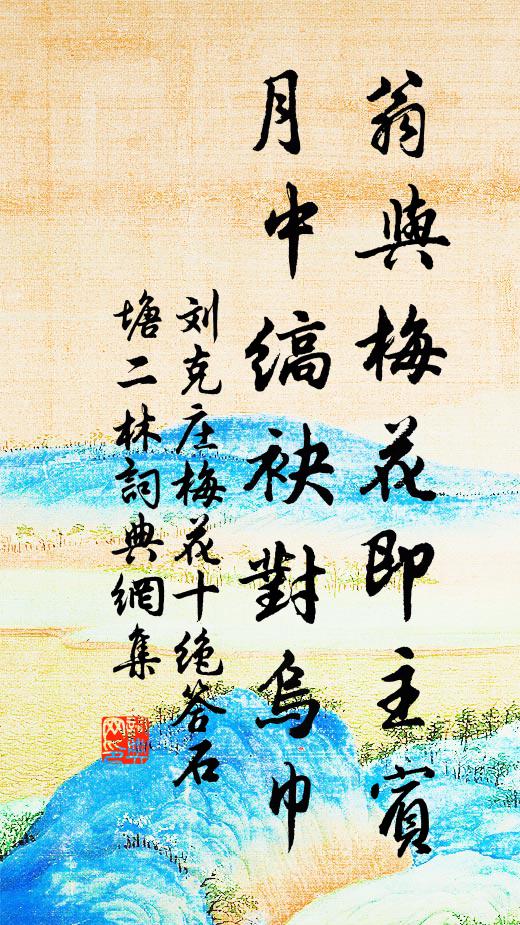 翁與梅花即主賓
月中縞袂對烏巾
刘克庄梅花十绝答石
塘二林詞典網集